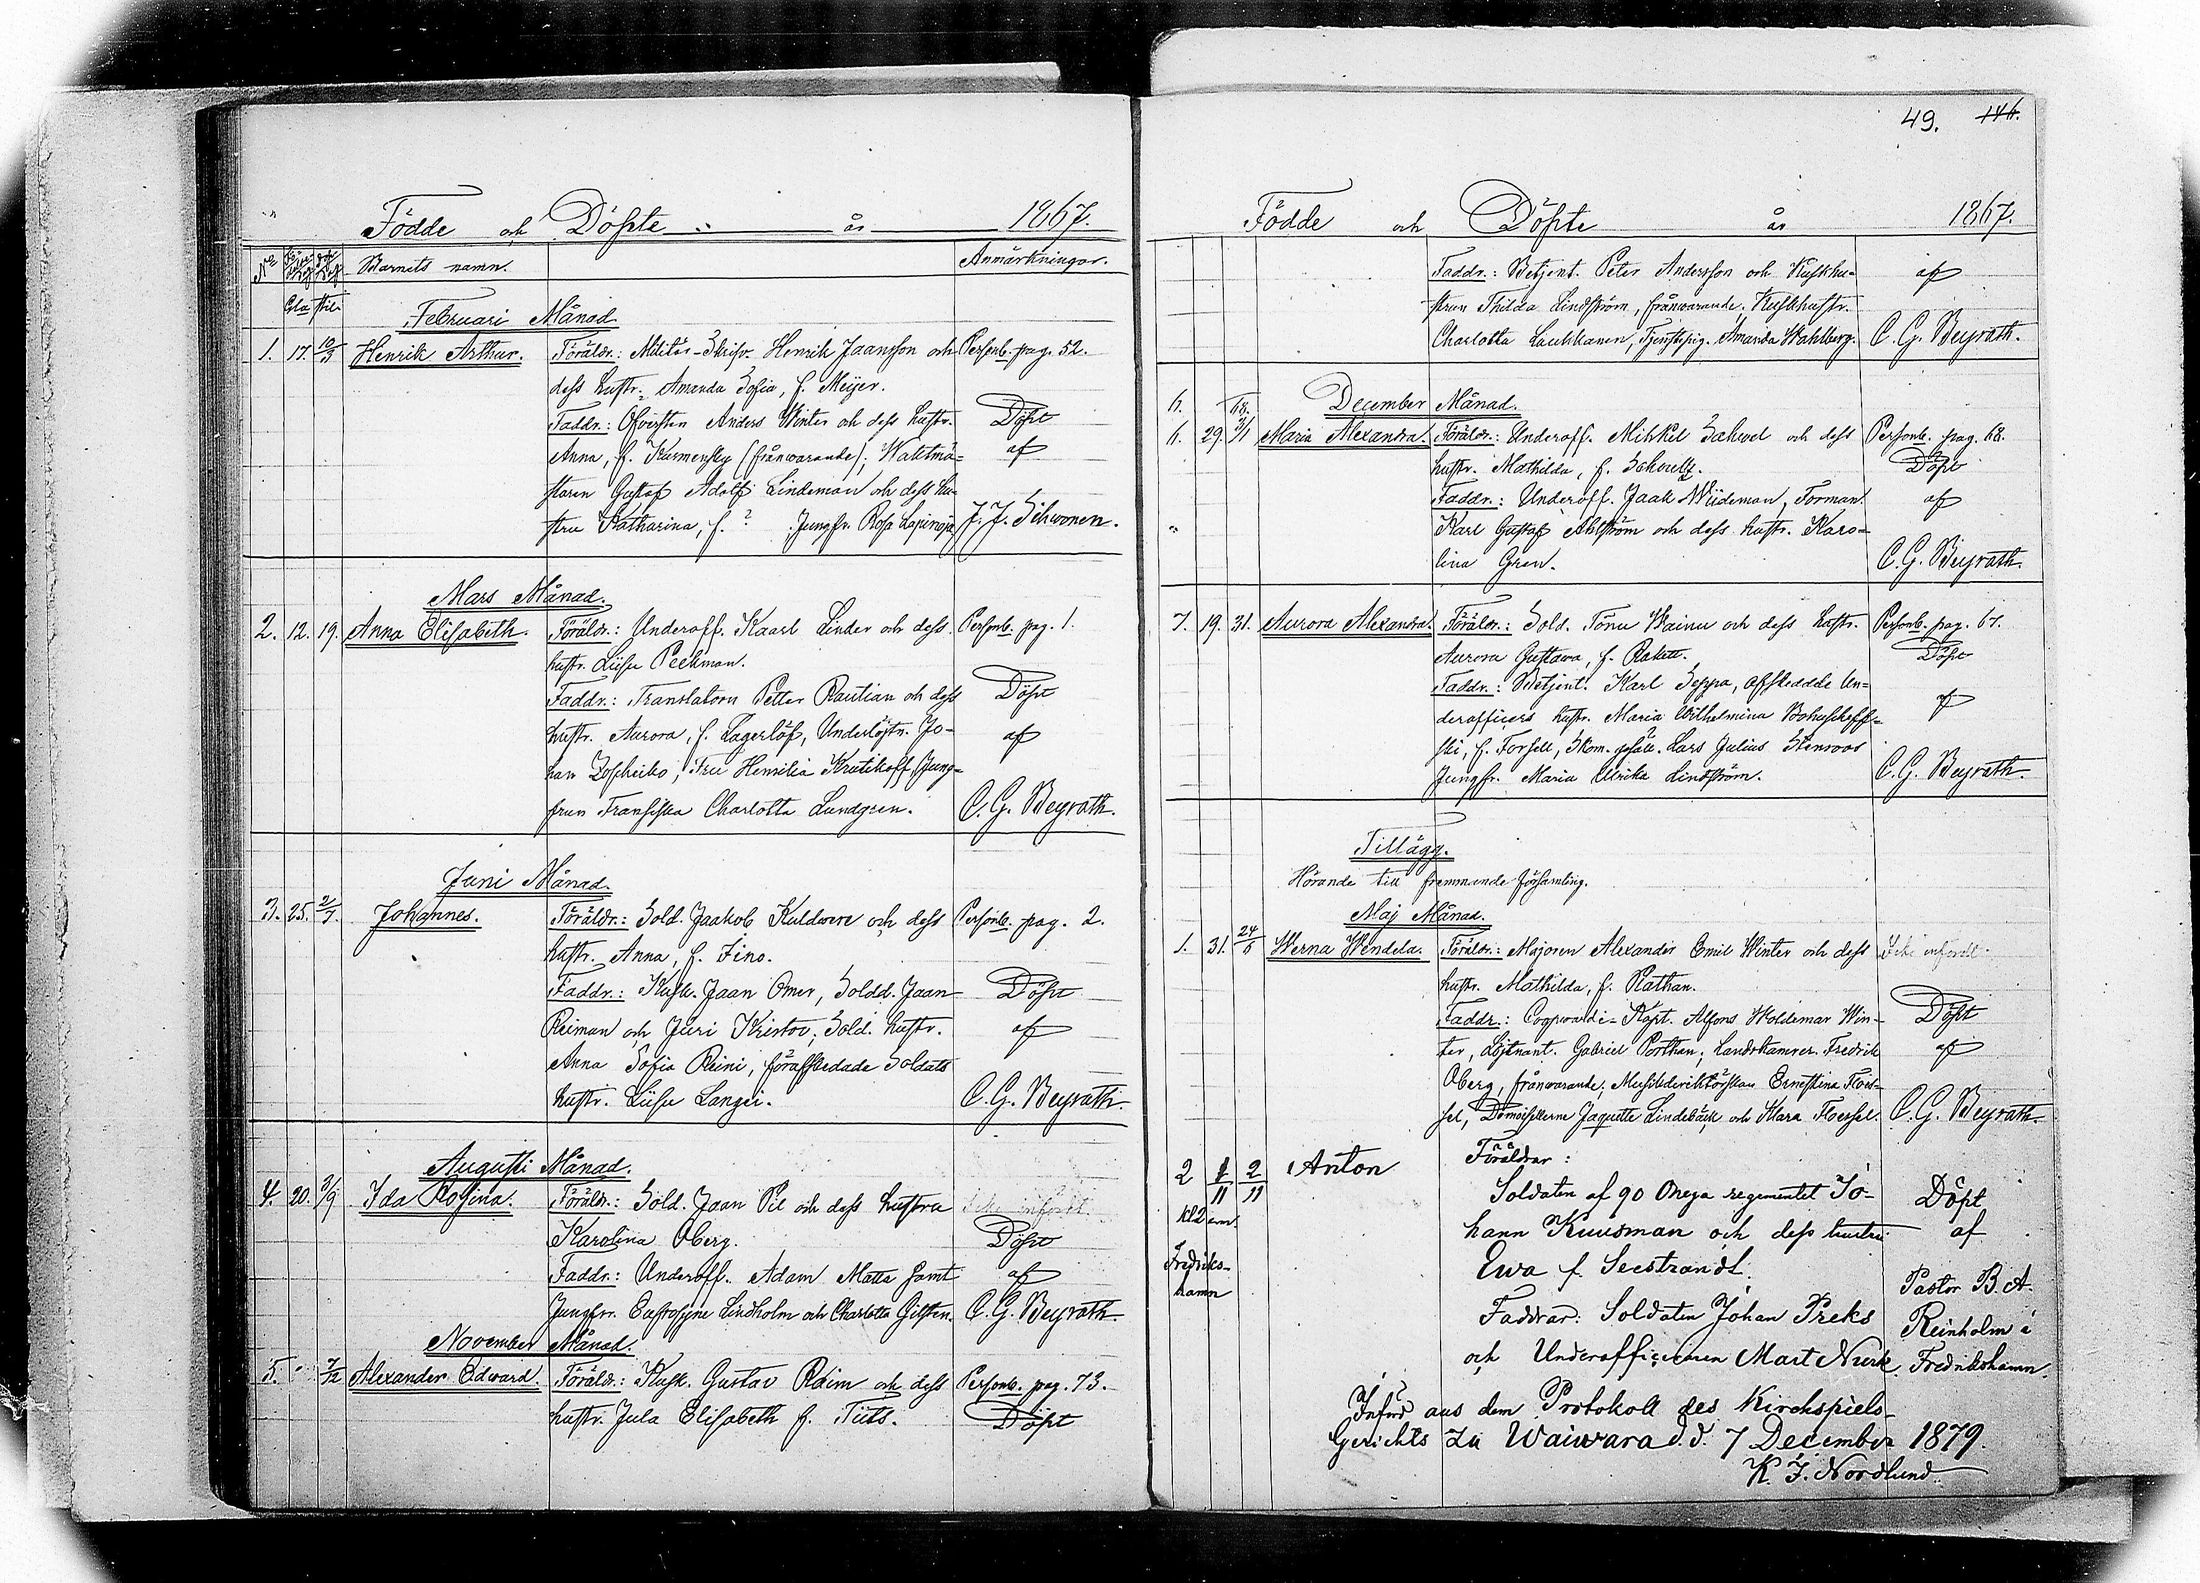 Födde och Döpte år 1867.
No Barnets namn. Anmärkningar.
Gla stil
Februari Månad.
1. 17. 10/3 Henrik Arthur. Föräldr.: Militär-Skrifv. Henrik Jaansson och Personb. pag. 52.
dess hustr. Amanda Sofia, f. Meijer.
Faddr.: Öfversten Anders Winter och dess hustr. Döpt
Anna, f. Kurmensky (frånvarande); Waktmä- af
staren Gustaf Adolf Lindeman och dess hu-
stru Katharina, f. ? Jungfr. Rosa Lapinoja J. J. Sihvonen.
Mars Månad.
2. 12. 19. Anna Elisabeth. Föräldr.: Underoff. Kaarl Linder och dess Personb. pag. 1.
hustr. Liisu Peekman.
Faddr.: Translatorn Petter Rautian och dess Döpt
hustr. Aurora, f. Lagerlöf, Underlöjtn. Jo- af
han Zoscheiko, Fru Henrilia Krutikoff, Jung-
frun Fransiska Charlotta Lundgren. C. G. Beyrath.
Juni Månad.
3. 25. 2/7. Johannes. Föräldr.: Sold. Jaakob Kuldwere och dess Personb. pag. 2.
hustr. Anna, f. Jino.
Faddr.: Kusk. Jaan Omer, Soldd. Jaan Döpt
Reiman och Jüri Kristov; Sold. hustr. af
Anna Sofia Reini, förafskedade Soldats
hustr. Liisu Langei. C. G. Beyrath.
Augusti Månad.
4. 20. 3/9 Ida Rosina. Föräldr.: Sold. Jaan Pil och dess hustru Icke införd.
Karolina Öberg. Döpt
Faddr.: Underoff. Adam Matta samt af
Jungfrr. Eufrosyne Lindholm och Charlotta Gilsten. C. G. Beyrath.
November Månad.
5. 7/12 Alexander Edward. Föräldr.: Kusk. Gustav Raim och dess Personb. pag. 73.
hustr. Jula Elisabeth f. Tiits. Döpt
49. 146.
Födde och Döpte år 1867.
Faddr.: Betjent. Peter Andersson och Kuskhu- af
strun Thilda Lindström, frånvarande; Kuskhustr.
Charlotta Laukkanen, Tjenstepig. Amanda Wahlberg. C. G. Beyrath.
6. 68. December Månad.
6. 29. 3/1 Maria Alexandra. Föräldr.: Underoff. Mihkel Sahwel och dess Personb. pag. 68.
hustr. Mathilda, f. Schoultz. Döpt
Faddr.: Underoff. Jaak Wiideman, Forman af
Karl Gustaf Ahlström och dess hustr. Karo-
lina Gren. C. G. Beyrath.
7. 19. 31. Aurora Alexandra. Föräldr.: Sold. Tönu Wainu och dess hustr. Personb. pag. 67.
Aurora Gustava, f. Rakett. Döpt
Faddr.: Betjent. Karl Seppa, afskedade Un- af
derofficers hustr. Maria Wilhelmina Bohuscheff-
ski, f. Forsell, Skom. gesäll. Lars Julius Stenroos
Jungfr. Maria Ulrika Lindström. C. G. Beyrath.
Tillägg.
Hörande till fremmande församling.
Maj Månad.
1. 31. 24/6 Werna Wendela. Föräldr.: Majoren Alexander Emil Winter och dess Icke införd
hustr. Mathilda, f. Rathan.
Faddr.: Coopvardi-Kapt. Alfons Woldemar Win- Döpt
ter, Löjtnant. Gabriel Porthan; Landskamrer. Fredrik af
Öberg, frånvarande; Musikdirektörskan Ernestina Floes-
sel, Demoisellerna Jaquette Lindebäck och Klara Floessel. C. G. Beyrath.
2 1/11 2/11 Anton Föräldrar:
Soldaten af 90 Onega regementet Jo- Döpt
kl 2 em. hann Kuusman och dess hustru af
Fredriks- Ewa f. Seestrandt. Pastor B. A.
hamn Faddrar: Soldaten Johan Preks Reinholm i
och Underofficeraren Mart Nurk. Fredrikshamn.
Införd aus dem Protokoll des Kirchspiels-
Gerichts zu Waiwara d. d. 7 December 1879.
K. J. Nordlund